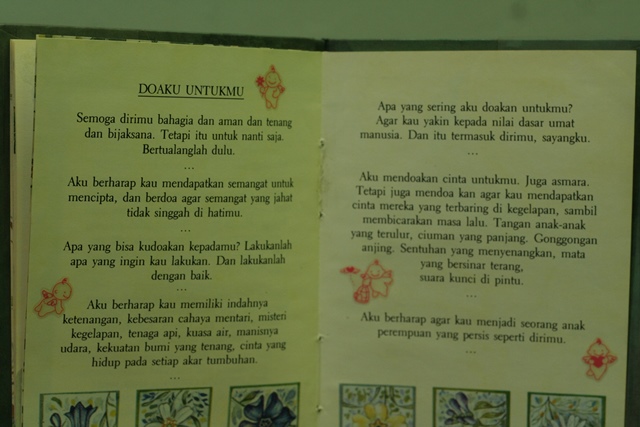 DOAKU UNTUKMU
Semoga dirimu bahagia dan aman dan tenang
dan bijaksana. Tetapi itu untuk nanti saja.
Bertualanglah dulu.
...
Aku berharap kau mendapatkan semangat untuk
mencipta, dan berdoa agar semangat yang jahat
tidak singgah di hatimu.
...
Apa yang bisa kudoakan kepadamu? Lakukanlah
apa yang ingin kau lakukan. Dan lakukanlah
dengan baik.
...
Aku berharap kau memiliki indahnya
ketenangan, kebesaran cahaya mentari, misteri
kegelapan, tenaga api, kuasa air, manisnya
udara, kekuatan bumi yang tenang, cinta yang
hidup pada setiap akar tumbuhan.
...
Apa yang sering aku doakan untukmu?
Agar kau yakin kepada nilai dasar umat
manusia. Dan itu termasuk dirimu, sayangku.
...
Aku mendoakan cinta untukmu. Juga asmara.
Tetapi juga mendoa kan agar kau mendapatkan
cinta mereka yang terbaring di kegelapan, sambil
membicarakan masa lalu. Tangan anak-anak
yang terulur, ciuman yang panjang. Gonggongan
anjing. Sentuhan yang menyenangkan, mata
yang bersinar terang,
suara kunci di pintu.
...
Aku berharap agar kau menjadi seorang anak
perempuan yang persis seperti dirimu.
...